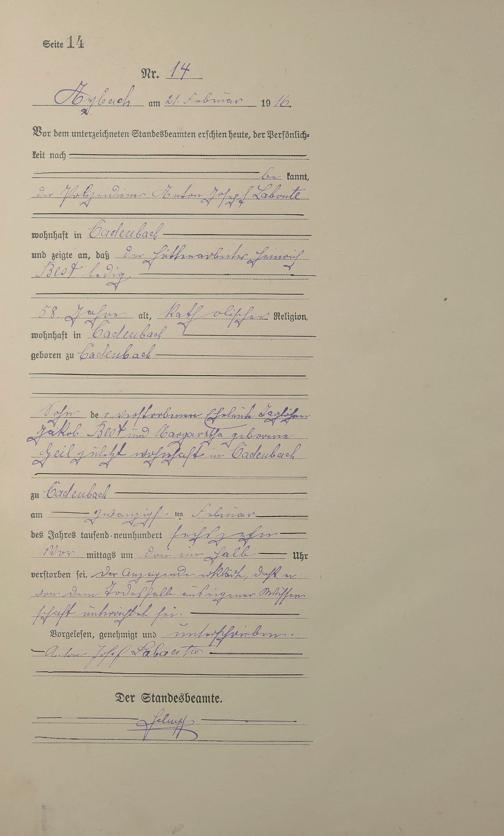 Seite 14
Nr. 14
Arzbach am 21. Februar 1916.
Vor dem unterzeichneten Standesbeamten erschien heute, der Persönlich-
keit nach
be kannt,
der Anton Joseph
wohnhaft in Cadenbach
und zeigte an, daß der Hüttenarbeiter Heinrich
Best ledig,
58 Jahre alt, kath olischer Religion,
wohnhaft in Cadenbach
geboren zu Cadenbach
Sohn de r verstorbenen Eheleute
Jakob Best und Margaretha geborene
Heil zuletzt wohnhaft in Cadenbach
zu Cadenbach
am zwanzigsten Februar
des Jahres tausend-neunhundert sechszehn
Vor mittags um ein halb Uhr
verstorben sei. Der Anzeigende erklärte, daß er
von dem Todesfalle aus eigener Wissen-
schaft unterrichtet sei.
Vorgelesen, genehmigt und unterschrieben.
Anton Josef
Der Standesbeamte.